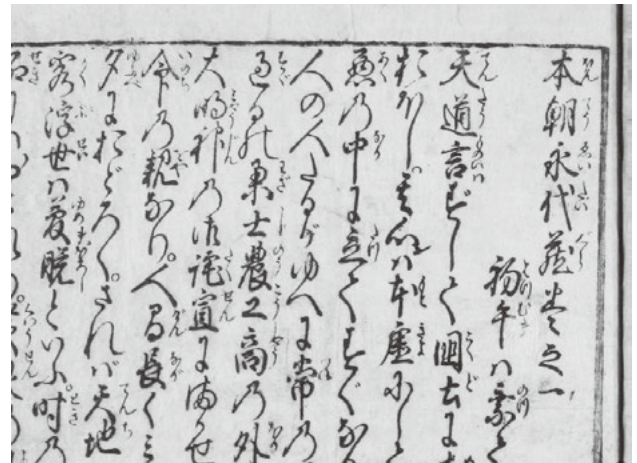 本朝永代蔵巻之一
初午ハ乗て
天道言ずして国土に
おほし。其心ハ本虚にして
悪の中に立てすぐなる
人の人たるがゆへに常の
過るの業士農工商の外
大明神の御託宣にまかせ
命の親なり。人間長くミ
夕におどろく。されバ天地
客浮世ハ夢幻といふ。時の